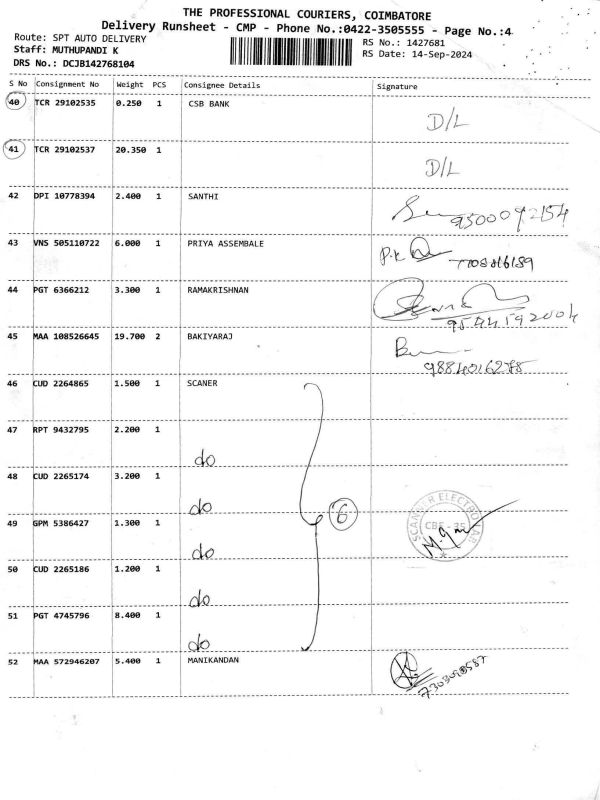 THE PROFESSIONAL COURIERS, COIMBATORE
Delivery Runsheet - CMP - Phone No.:0422-3505555 - Page No.:4
Route: SPT AUTO DELIVERY
Staff: MUTHUPANDI K
DRS No.: DCJB142768104
RS No.: 1427681
RS Date: 14-Sep-2024
S No Consignment No Weight PCS Consignee Details Signature
40 TCR 29102535 0.250 1 CSB BANK D/L
41 TCR 29102537 20.350 1 D/L
42 DPI 10778394 2.400 1 SANTHI 9500092154
43 VNS 505110722 6.000 1 PRIYA ASSEMBALE P.K 7708816189
44 PGT 6366212 3.300 1 RAMAKRISHNAN
45 MAA 108526645 19.700 2 BAKIYARAJ 9884016278
46 CUD 2264865 1.500 1 SCANER
47 RPT 9432795 2.200 1 do
48 CUD 2265174 3.200 1 do
6
49 GPM 5386427 1.300 1 do
50 CUD 2265186 1.200 1 do
51 PGT 4745796 8.400 1 do
52 MAA 572946207 5.400 1 MANIKANDAN